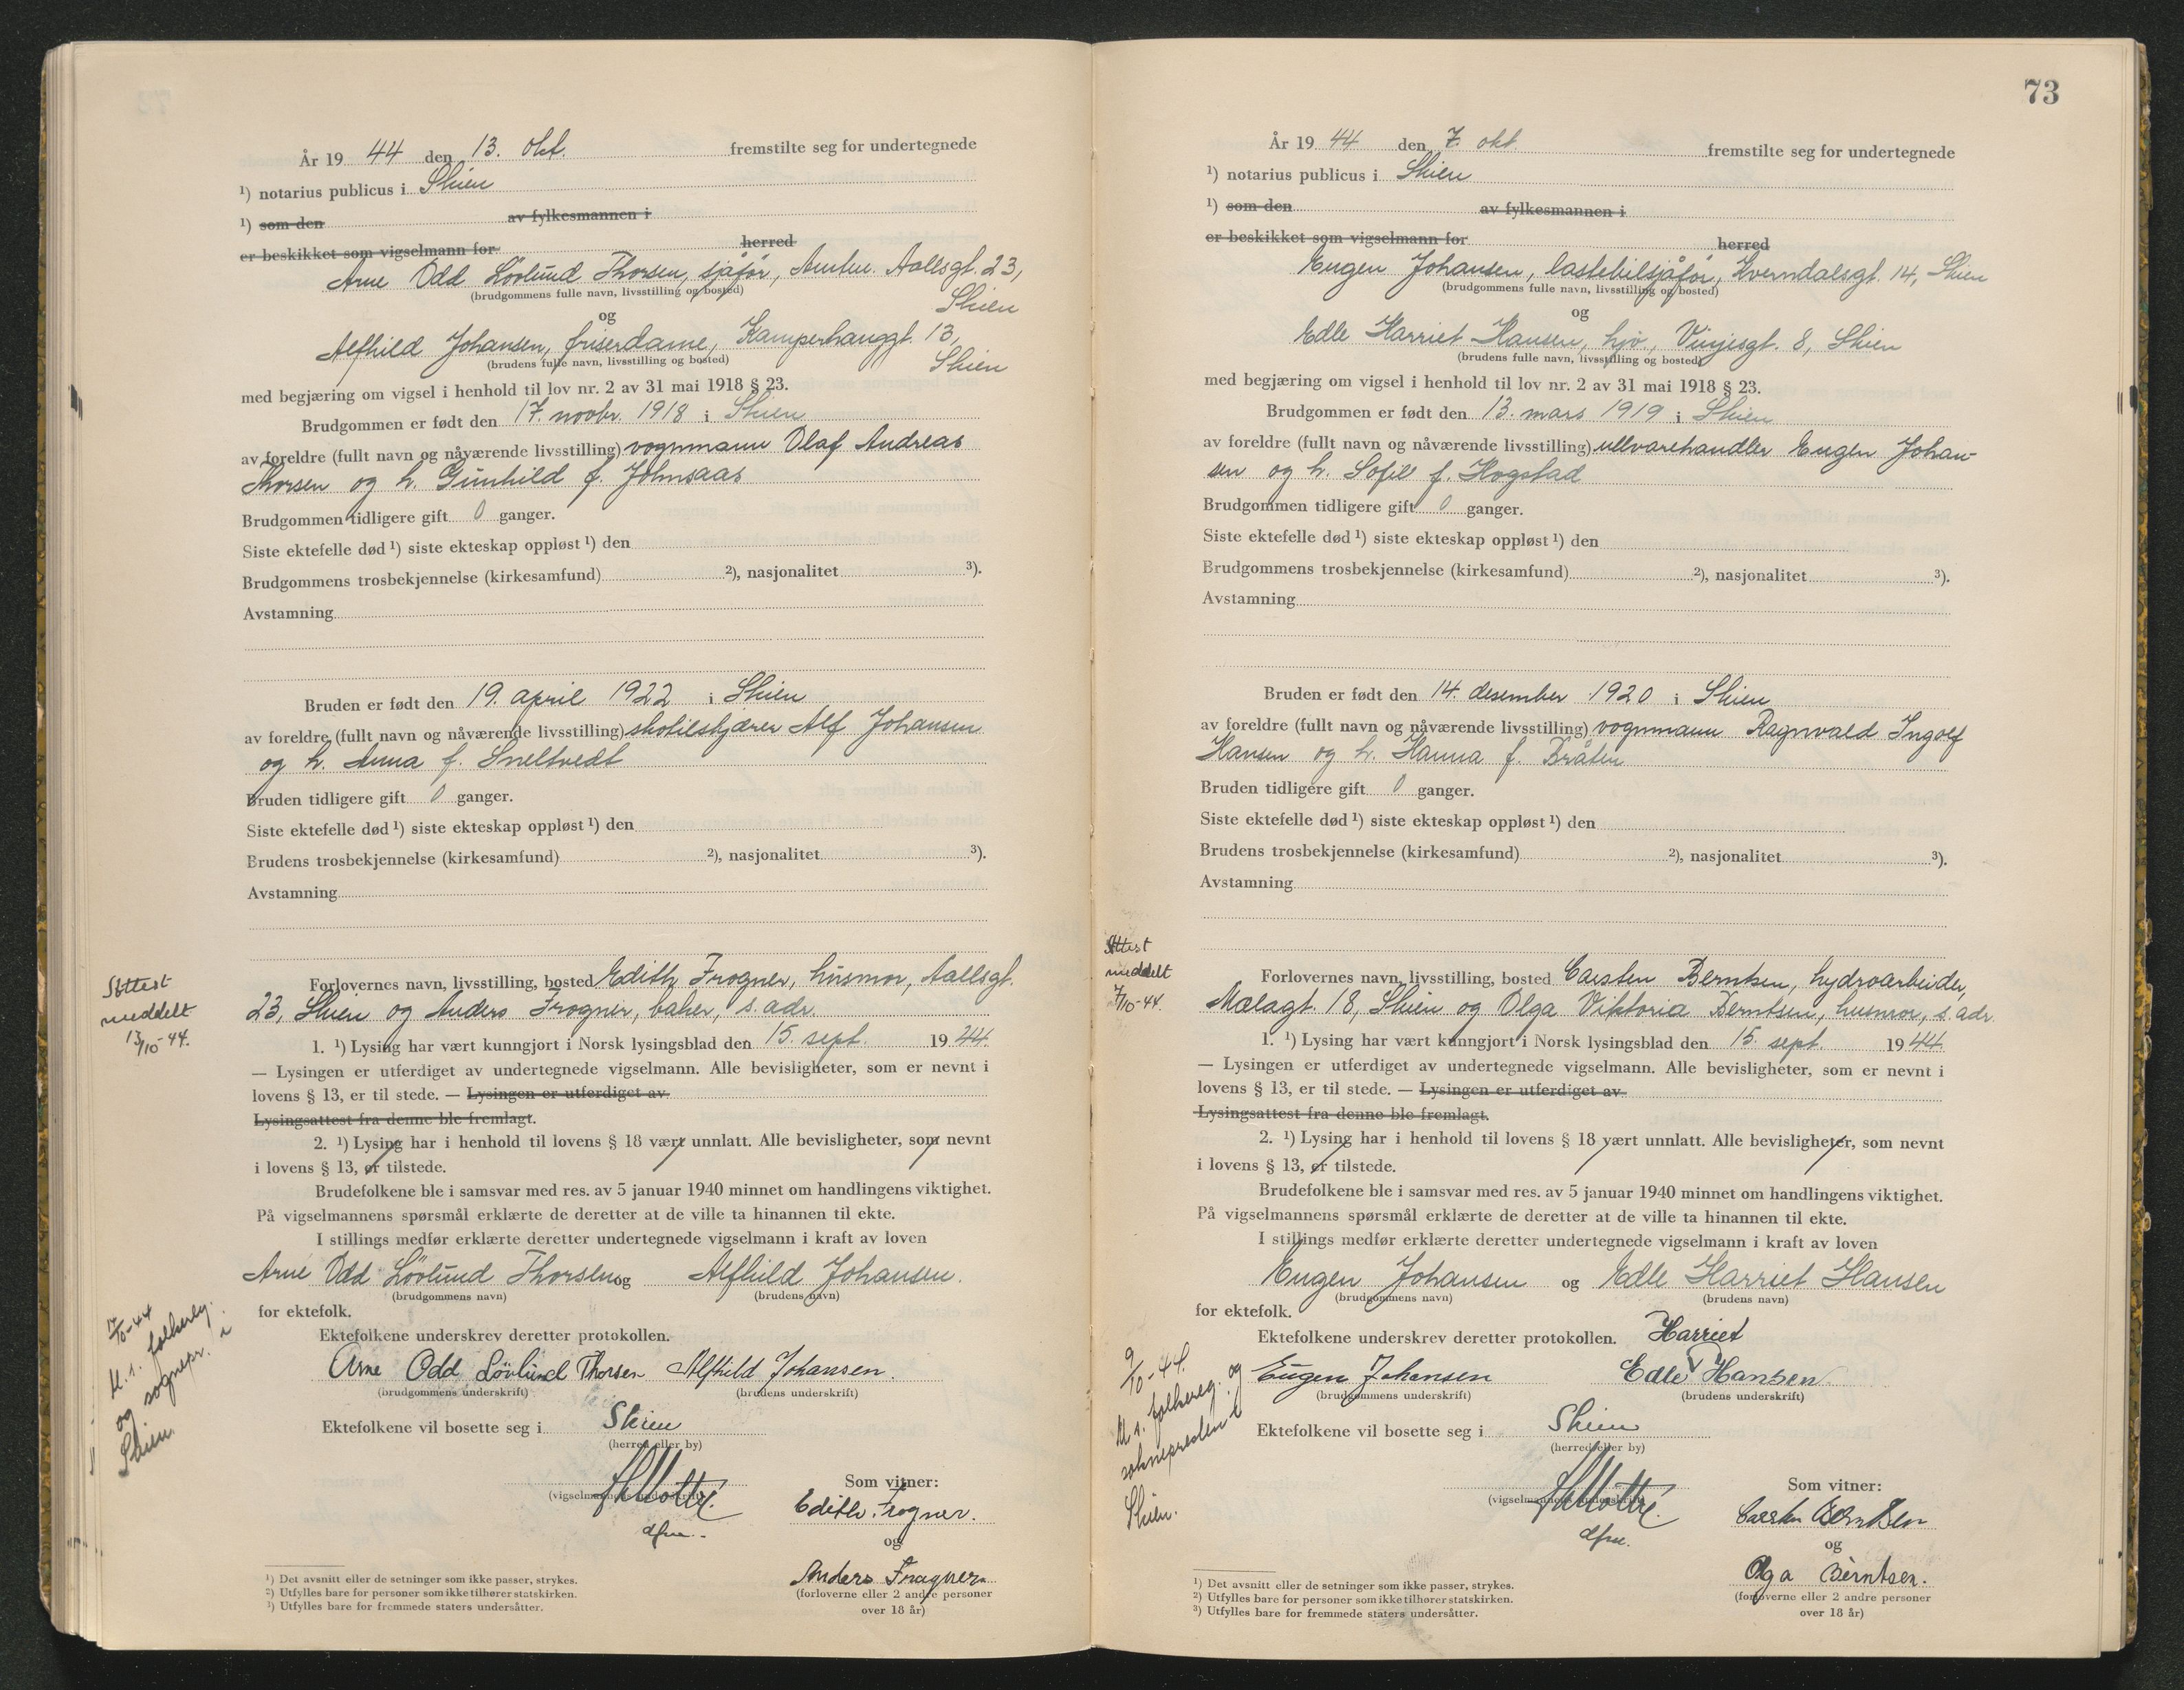 År 19 44 den 13. okt. fremstilte seg for undertegnede
¹) notarius publicus i Skien
¹) som den av fylkesmannen i
er beskikket som vigselmann for herred
Arne Odd Lövlund Thorsen, sjåför, Amtm. Aallsgt. 23,
(brudgommens fulle navn, livsstilling og bosted)
Skien
og
Alfhild Johansen, friserdame, Kamperhauggt. 13,
(brudens fulle navn, livsstilling og bosted)
Skien
med begjæring om vigsel i henhold til lov nr. 2 av 31 mai 1918 § 23.
Brudgommen er født den 17. novbr. 1918 i Skien
av foreldre (fullt navn og nåværende livsstilling) vognmann Olaf Andreas
Thorsen og h. Gunhild f. Johnsaas
Brudgommen tidligere gift 0 ganger.
Siste ektefelle død ¹) siste ekteskap oppløst ¹) den
Brudgommens trosbekjennelse (kirkesamfund) ²), nasjonalitet ³).
Avstamning
Bruden er født den 19. april 1922 i Skien
av foreldre (fullt navn og nåværende livsstilling) skotilskjærer Alf Johansen
og h. Anna f. Sneltvedt
Bruden tidligere gift 0 ganger.
Siste ektefelle død ¹) siste ekteskap oppløst ¹) den
Brudens trosbekjennelse (kirkesamfund) ²), nasjonalitet ³).
Avstamning
Attest
meddelt
13/10-44.
Forlovernes navn, livsstilling, bosted Edith Frogner, husmor, Aallsgt.
23, Skien og Anders Frogner, baker, s. adr.
1. ¹) Lysing har vært kunngjort i Norsk lysingsblad den 15. sept. 19 44.
— Lysingen er utferdiget av undertegnede vigselmann. Alle bevisligheter, som er nevnt i
lovens § 13, er til stede. — Lysingen er utferdiget av
Lysingsattest fra denne ble fremlagt.
2. ¹) Lysing har i henhold til lovens § 18 vært unnlatt. Alle bevisligheter, som nevnt
i lovens § 13, er tilstede.
Brudefolkene ble i samsvar med res. av 5 januar 1940 minnet om handlingens viktighet.
På vigselmannens spørsmål erklærte de deretter at de ville ta hinannen til ekte.
I stillings medfør erklærte deretter undertegnede vigselmann i kraft av loven
Arne Odd Lövlund Thorsen og Alfhild Johansen.
(brudgommens navn) (brudens navn)
for ektefolk.
17/10-44
M. t. folkereg.
og sognepr. i
Skien.
Ektefolkene underskrev deretter protokollen.
Arne Odd Lövlund Thorsen Alfhild Johansen.
(brudgommens underskrift) (brudens underskrift)
Ektefolkene vil bosette seg i Skien
(herred eller by)
(vigselmannens underskrift)
dfm.
Som vitner:
Edith Frogner.
og
Anders Frogner
(forloverne eller 2 andre personer
over 18 år)
¹) Det avsnitt eller de setninger som ikke passer, strykes.
²) Utfylles bare for personer som ikke tilhører statskirken.
³) Utfylles bare for fremmede staters undersåtter.
73
År 19 44 den 7. okt. fremstilte seg for undertegnede
¹) notarius publicus i Skien
¹) som den av fylkesmannen i
er beskikket som vigselmann for herred
Eugen Johansen, lastebilsjåför, Hverndalsgt. 14, Skien
(brudgommens fulle navn, livsstilling og bosted)
og
Edle Harriet Hansen, hjv., Vinjesgt. 8, Skien
(brudens fulle navn, livsstilling og bosted)
med begjæring om vigsel i henhold til lov nr. 2 av 31 mai 1918 § 23.
Brudgommen er født den 13. mars 1919 i Skien
av foreldre (fullt navn og nåværende livsstilling) ullvarehandler Eugen Johan-
sen og h. Sofie f. Hogstad
Brudgommen tidligere gift 0 ganger.
Siste ektefelle død ¹) siste ekteskap oppløst ¹) den
Brudgommens trosbekjennelse (kirkesamfund) ²), nasjonalitet ³).
Avstamning
Bruden er født den 14. desember 1920 i Skien
av foreldre (fullt navn og nåværende livsstilling) vognmann Ragnvald Ingolf
Hansen og h. Hanna f. Bråten
Bruden tidligere gift 0 ganger.
Siste ektefelle død ¹) siste ekteskap oppløst ¹) den
Brudens trosbekjennelse (kirkesamfund) ²), nasjonalitet ³).
Avstamning
Attest
meddelt
7/10-44.
Forlovernes navn, livsstilling, bosted Carsten Berntsen, hydroarbeider,
Mælagt. 18, Skien og Olga Viktoria Berntsen, husmor, s. adr
1. ¹) Lysing har vært kunngjort i Norsk lysingsblad den 15. sept. 19 44
— Lysingen er utferdiget av undertegnede vigselmann. Alle bevisligheter, som er nevnt i
lovens § 13, er til stede. — Lysingen er utferdiget av
Lysingsattest fra denne ble fremlagt.
2. ¹) Lysing har i henhold til lovens § 18 vært unnlatt. Alle bevisligheter, som nevnt
i lovens § 13, er tilstede.
Brudefolkene ble i samsvar med res. av 5 januar 1940 minnet om handlingens viktighet.
På vigselmannens spørsmål erklærte de deretter at de ville ta hinannen til ekte.
I stillings medfør erklærte deretter undertegnede vigselmann i kraft av loven
Eugen Johansen og Edle Harriet Hansen
(brudgommens navn) (brudens navn)
for ektefolk.
9/10-44.
M. t. folkereg. og
soknepresten i
Skien.
Ektefolkene underskrev deretter protokollen. Harriet
Eugen Johansen Edle Hansen
(brudgommens underskrift) (brudens underskrift)
Ektefolkene vil bosette seg i Skien
(herred eller by)
(vigselmannens underskrift)
dfm.
Som vitner:
Carsten Berntsen
og
Olga Berntsen.
(forloverne eller 2 andre personer
over 18 år)
¹) Det avsnitt eller de setninger som ikke passer, strykes.
²) Utfylles bare for personer som ikke tilhører statskirken.
³) Utfylles bare for fremmede staters undersåtter.